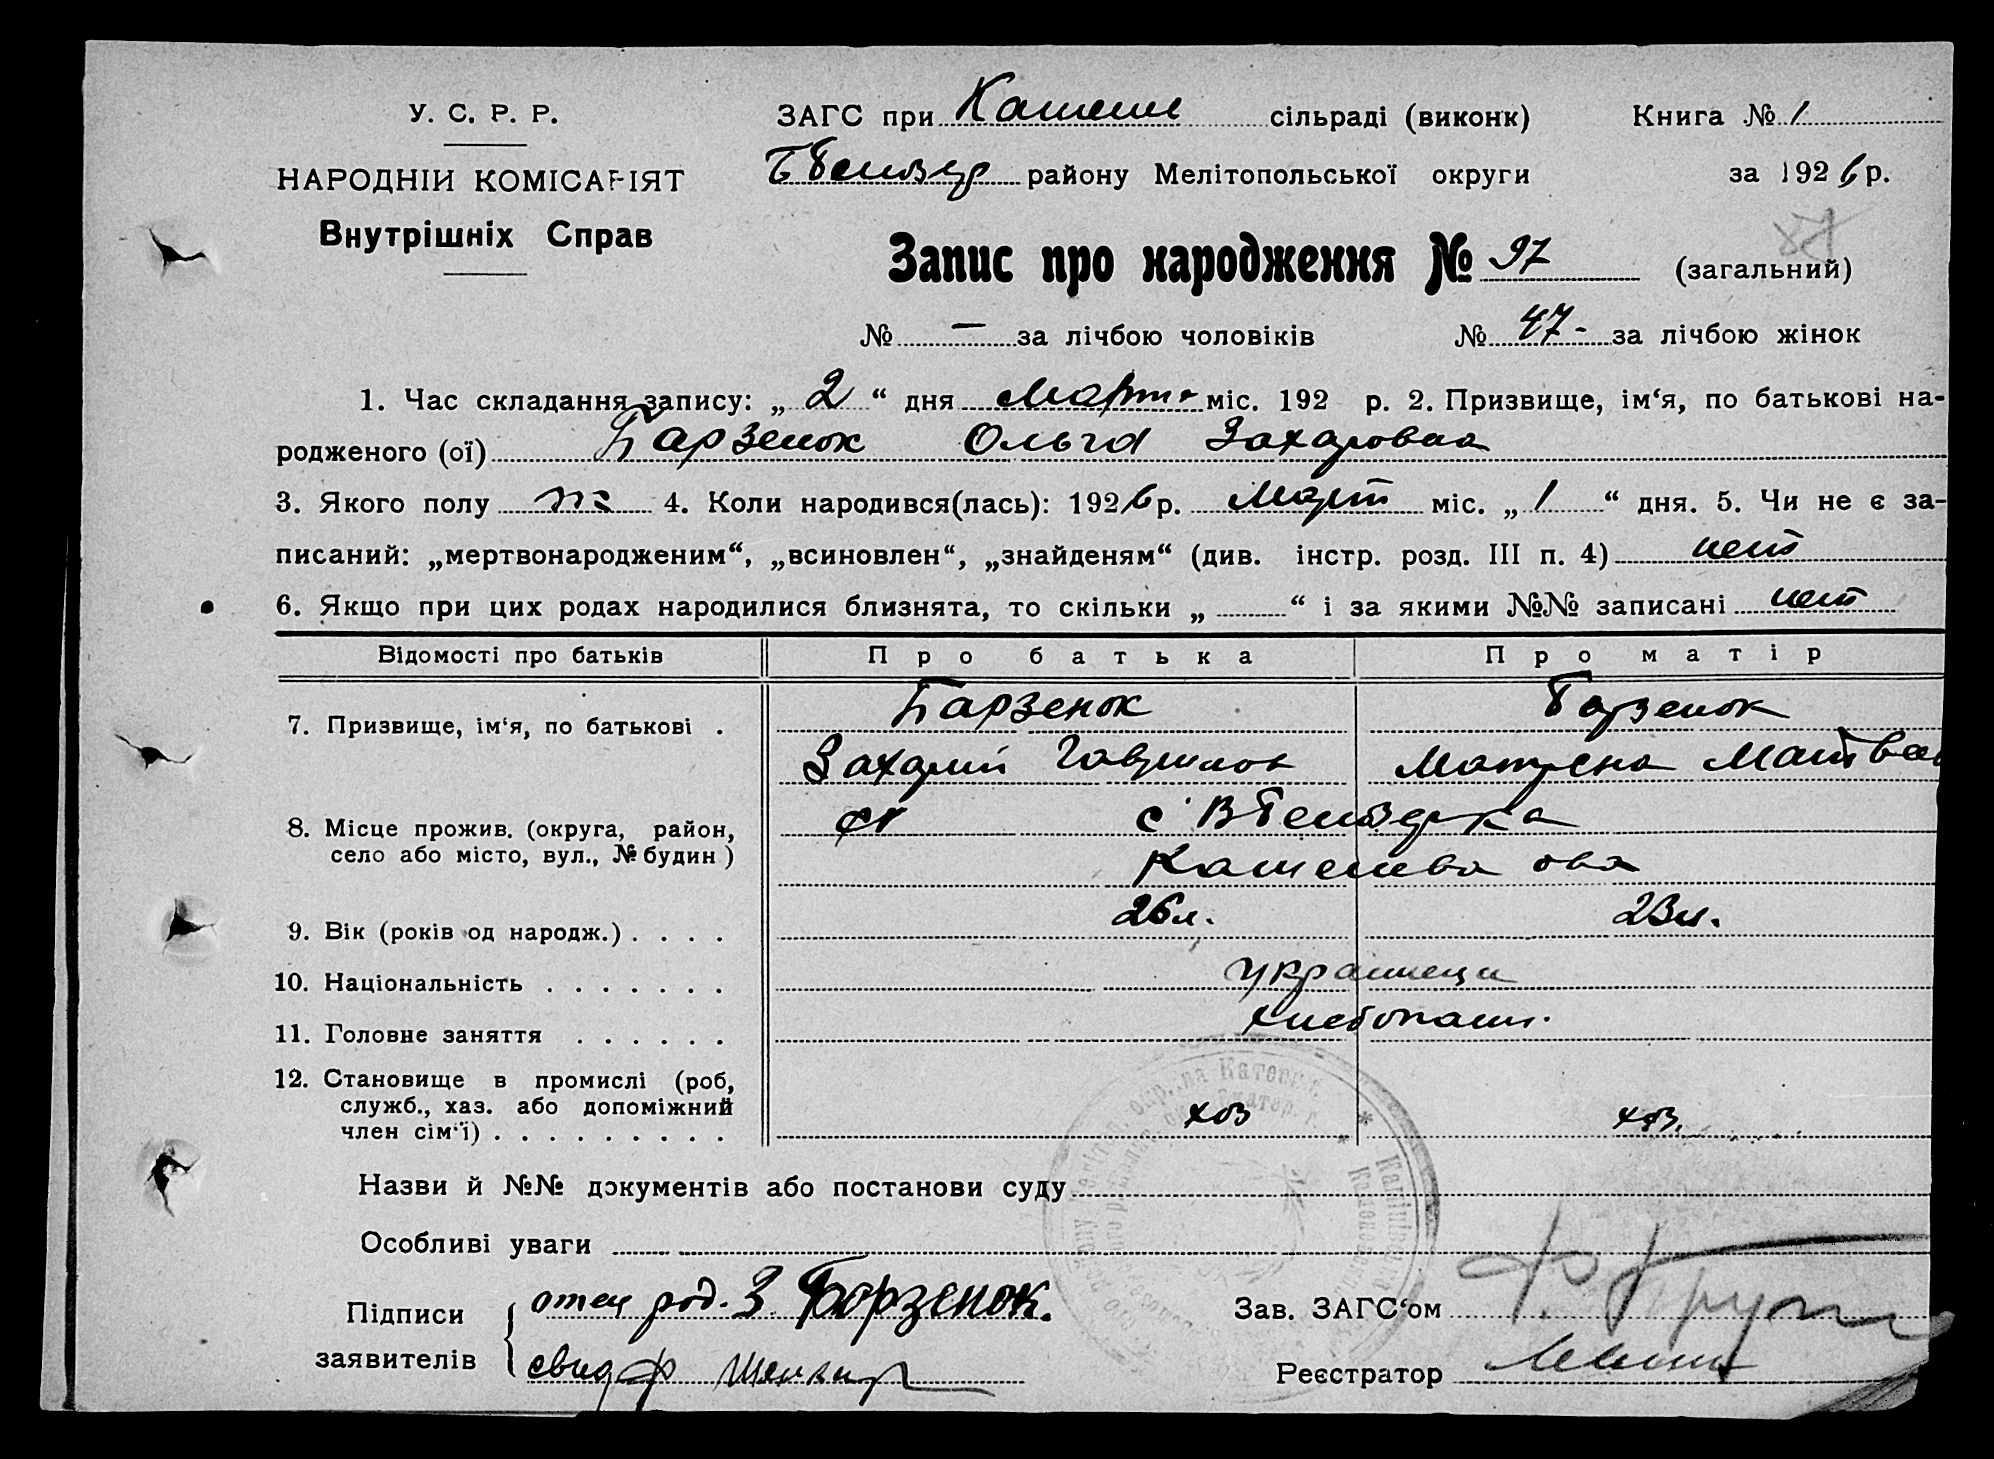 У. С. Р. Р.
НАРОДНІЙ КОМІСАРІЯТ
Внутрішніх Справ
ЗАГС при Камен сільраді (виконк)
району Мелітопольської округи
Книга № 1
за 1926 р.
87
Запис про народження № 97 (загальний)
№ — за лічбою чоловіків № 47- за лічбою жінок
1. Час складання запису: „ 2 “ дня Марта міс. 192 р. 2. Призвище, ім‘я, по батькові на-
родженого (ої) Барзенок Ольга Захаровна
3. Якого полу ж 4. Коли народився(лась): 1926 р. Март міс. „ 1 “ дня. 5. Чи не є за-
писаний: „мертвонародженим“, „всиновлен“, „знайденям“ (див. інстр. розд. III п. 4) нет
6. Якщо при цих родах народилися близнята, то скільки „ “ і за якими №№ записані нет
Відомості про батьків Про батька Про матір
7. Призвище, ім‘я, по батькові . Барзенок Барзенок
Захарий Гаврилов Матрена Матвеев
8. Місце прожив. (округа, район,
село або місто, вул., № будин )
с
9. Вік (років од народж.) . . . . 26 л. 23 л.
10. Національність . . . . . . . украинеци
11. Головне заняття . . . . . . хлебопаш.
12. Становище в промислі (роб,
служб., хаз. або допоміжний
член сім‘ї) . . . . . . . . . хоз хоз.
Назви й №№ документів або постанови суду
Особливі уваги
Підписи
заявителів
отец род. З Борзенок.
свид Ф
Зав. ЗАГС‘ом
Реєстратор